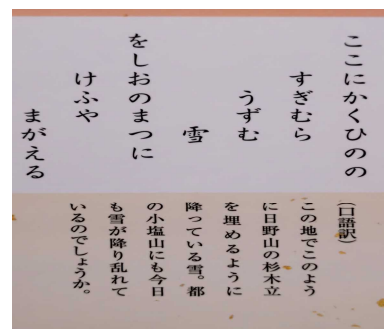 ここにかくひのの
すぎむら
うずむ
雪
をしおのまつに
けふや
まがえる
(口語訳)
この地でこのよう
に日野山の杉木立
を埋めるように
降っている雪。都
の小塩山にも今日
も雪が降り乱れて
いるのでしょうか。